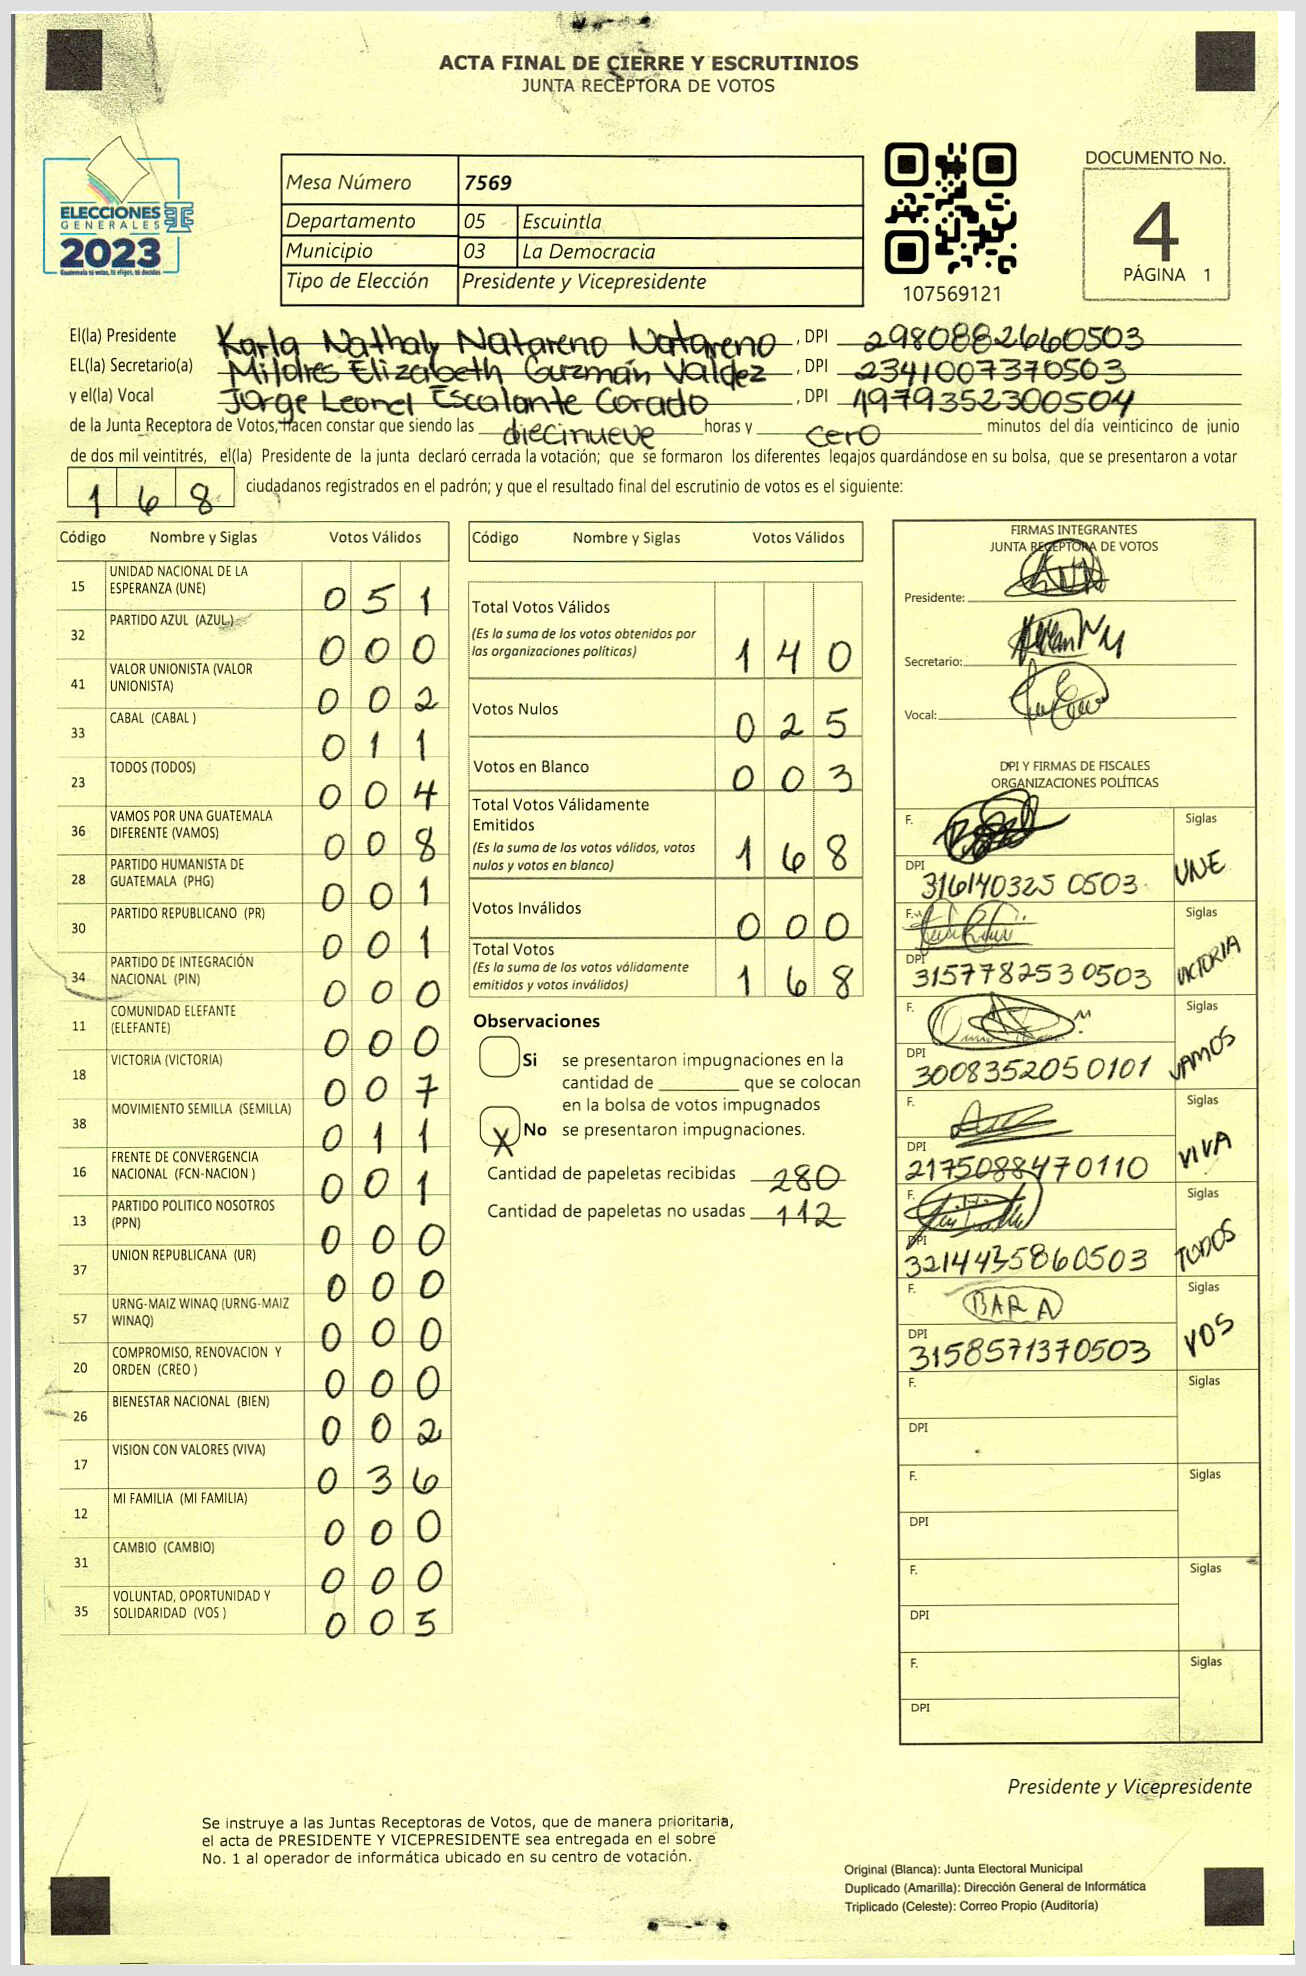 ACTA FINAL DE CIERRE Y ESCRUTINIOS
JUNTA RECEPTORA DE VOTOS
ELECCIONES
GENERALES
2023
Guatemala tú votas, tú eliges, tú decides
Mesa Número 7569
Departamento 05 Escuintla
Municipio 03 La Democracia
Tipo de Elección Presidente y Vicepresidente
107569121
DOCUMENTO No.
4
PÁGINA 1
El(la) Presidente Karla Nathaly Natareno Natareno, DPI 2980882660503
EL(la) Secretario(a) Mildres Elizabeth Guzmán Valdez, DPI 2341007370503
y el(la) Vocal Jorge Leonel Escalante Corado, DPI 1979352300504
de la Junta Receptora de Votos, hacen constar que siendo las diecinueve horas y cero minutos del día veinticinco de junio
de dos mil veintitrés, el(la) Presidente de la junta declaró cerrada la votación; que se formaron los diferentes legajos quardándose en su bolsa, que se presentaron a votar
168 ciudadanos registrados en el padrón; y que el resultado final del escrutinio de votos es el siguiente:
Código Nombre y Siglas Votos Válidos
15 UNIDAD NACIONAL DE LA ESPERANZA (UNE) 051
32 PARTIDO AZUL (AZUL) 000
41 VALOR UNIONISTA (VALOR UNIONISTA) 002
33 CABAL (CABAL ) 011
23 TODOS (TODOS) 004
36 VAMOS POR UNA GUATEMALA DIFERENTE (VAMOS) 008
28 PARTIDO HUMANISTA DE GUATEMALA (PHG) 001
30 PARTIDO REPUBLICANO (PR) 001
34 PARTIDO DE INTEGRACIÓN NACIONAL (PIN) 000
11 COMUNIDAD ELEFANTE (ELEFANTE) 000
18 VICTORIA (VICTORIA) 007
38 MOVIMIENTO SEMILLA (SEMILLA) 011
16 FRENTE DE CONVERGENCIA NACIONAL (FCN-NACION ) 001
13 PARTIDO POLITICO NOSOTROS (PPN) 000
37 UNION REPUBLICANA (UR) 000
57 URNG-MAIZ WINAQ (URNG-MAIZ WINAQ) 000
20 COMPROMISO, RENOVACION Y ORDEN (CREO ) 000
26 BIENESTAR NACIONAL (BIEN) 002
17 VISION CON VALORES (VIVA) 036
12 MI FAMILIA (MI FAMILIA) 000
31 CAMBIO (CAMBIO) 000
35 VOLUNTAD, OPORTUNIDAD Y SOLIDARIDAD (VOS ) 005
Código Nombre y Siglas Votos Válidos
Total Votos Válidos
(Es la suma de los votos obtenidos por
las organizaciones políticas) 140
Votos Nulos 025
Votos en Blanco 003
Total Votos Válidamente
Emitidos
(Es la suma de los votos válidos, votos
nulos y votos en blanco) 168
Votos Inválidos 000
Total Votos
(Es la suma de los votos válidamente
emitidos y votos inválidos) 168
Observaciones
Si se presentaron impugnaciones en la
cantidad de ________ que se colocan
en la bolsa de votos impugnados
X No se presentaron impugnaciones.
Cantidad de papeletas recibidas 280
Cantidad de papeletas no usadas 112
FIRMAS INTEGRANTES
JUNTA RECEPTORA DE VOTOS
Presidente:
Secretario:
Vocal:
DPI Y FIRMAS DE FISCALES
ORGANIZACIONES POLÍTICAS
F. Siglas
DPI 3161403250503 UNE
F. Siglas
DPI 3157782530503 VICTORIA
F. Siglas
DPI 3008352050101 VAMOS
F. Siglas
DPI 2175088470110 VIVA
F. Siglas
DPI 3214435860503 TODOS
F. BARA Siglas
DPI 3158571370503 VOS
F. Siglas
DPI
F. Siglas
DPI
F. Siglas
DPI
F. Siglas
DPI
Presidente y Vicepresidente
Se instruye a las Juntas Receptoras de Votos, que de manera prioritaria,
el acta de PRESIDENTE Y VICEPRESIDENTE sea entregada en el sobre
No. 1 al operador de informática ubicado en su centro de votación.
Original (Blanca): Junta Electoral Municipal
Duplicado (Amarilla): Dirección General de Informática
Triplicado (Celeste): Correo Propio (Auditoría)